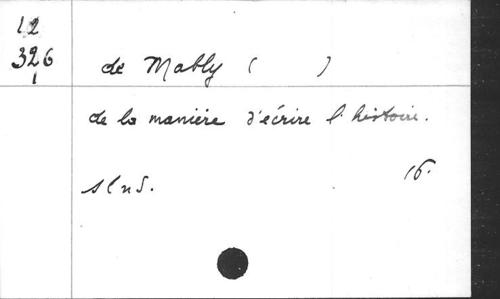 12
326
1
de Mably ( )
de la manière d'écrire l'histoire.
16.
slnd.